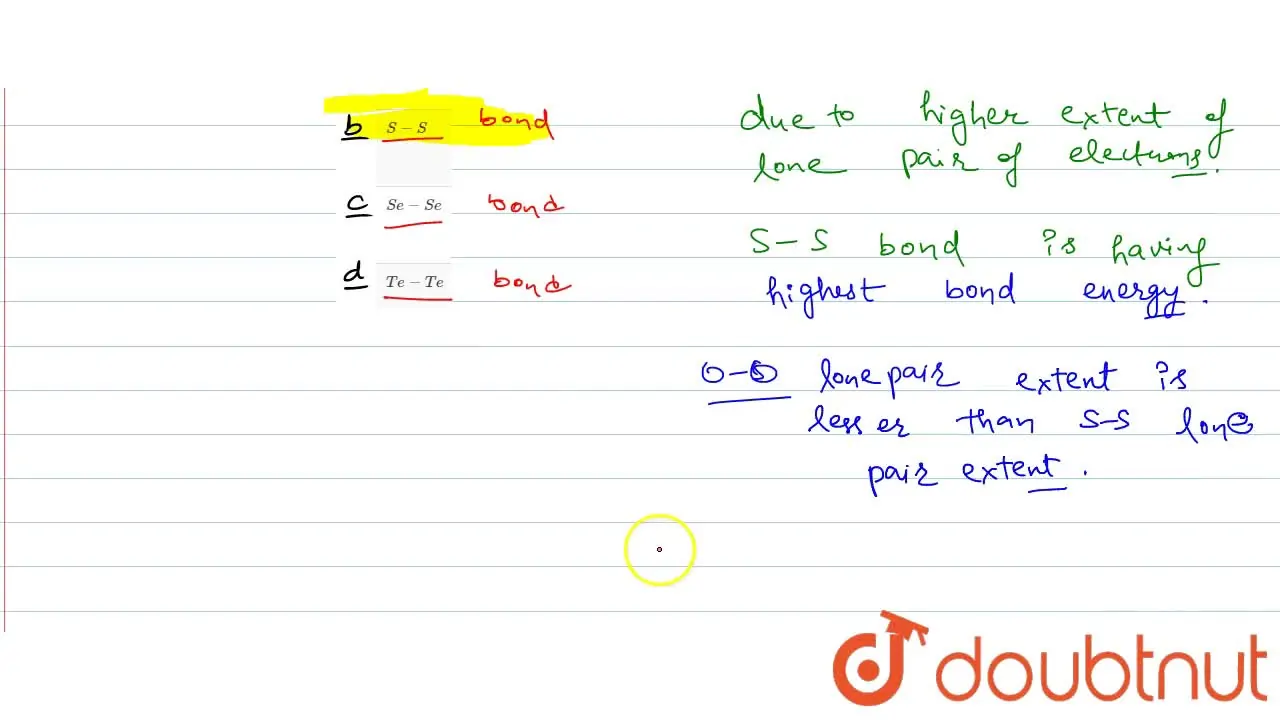 b S – S bond
c Se – Se bond
d Te – Te bond
due to higher extent of
lone pair of electrons.
S – S bond is having
highest bond energy.
O – O lone pair extent is
lesser than S–S lone
pair extent.
doubtnut